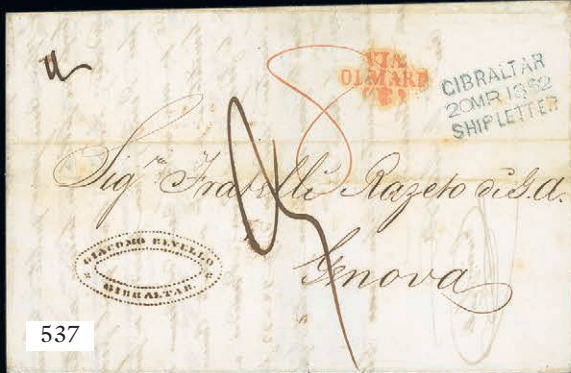 VIA
DI MARE
GIBRALTAR
20MR1852
SHIPLETTER
Sigri Fratelli Razeto di G.A.
Genova
GIACOMO REVELLO
GIBRALTAR
537